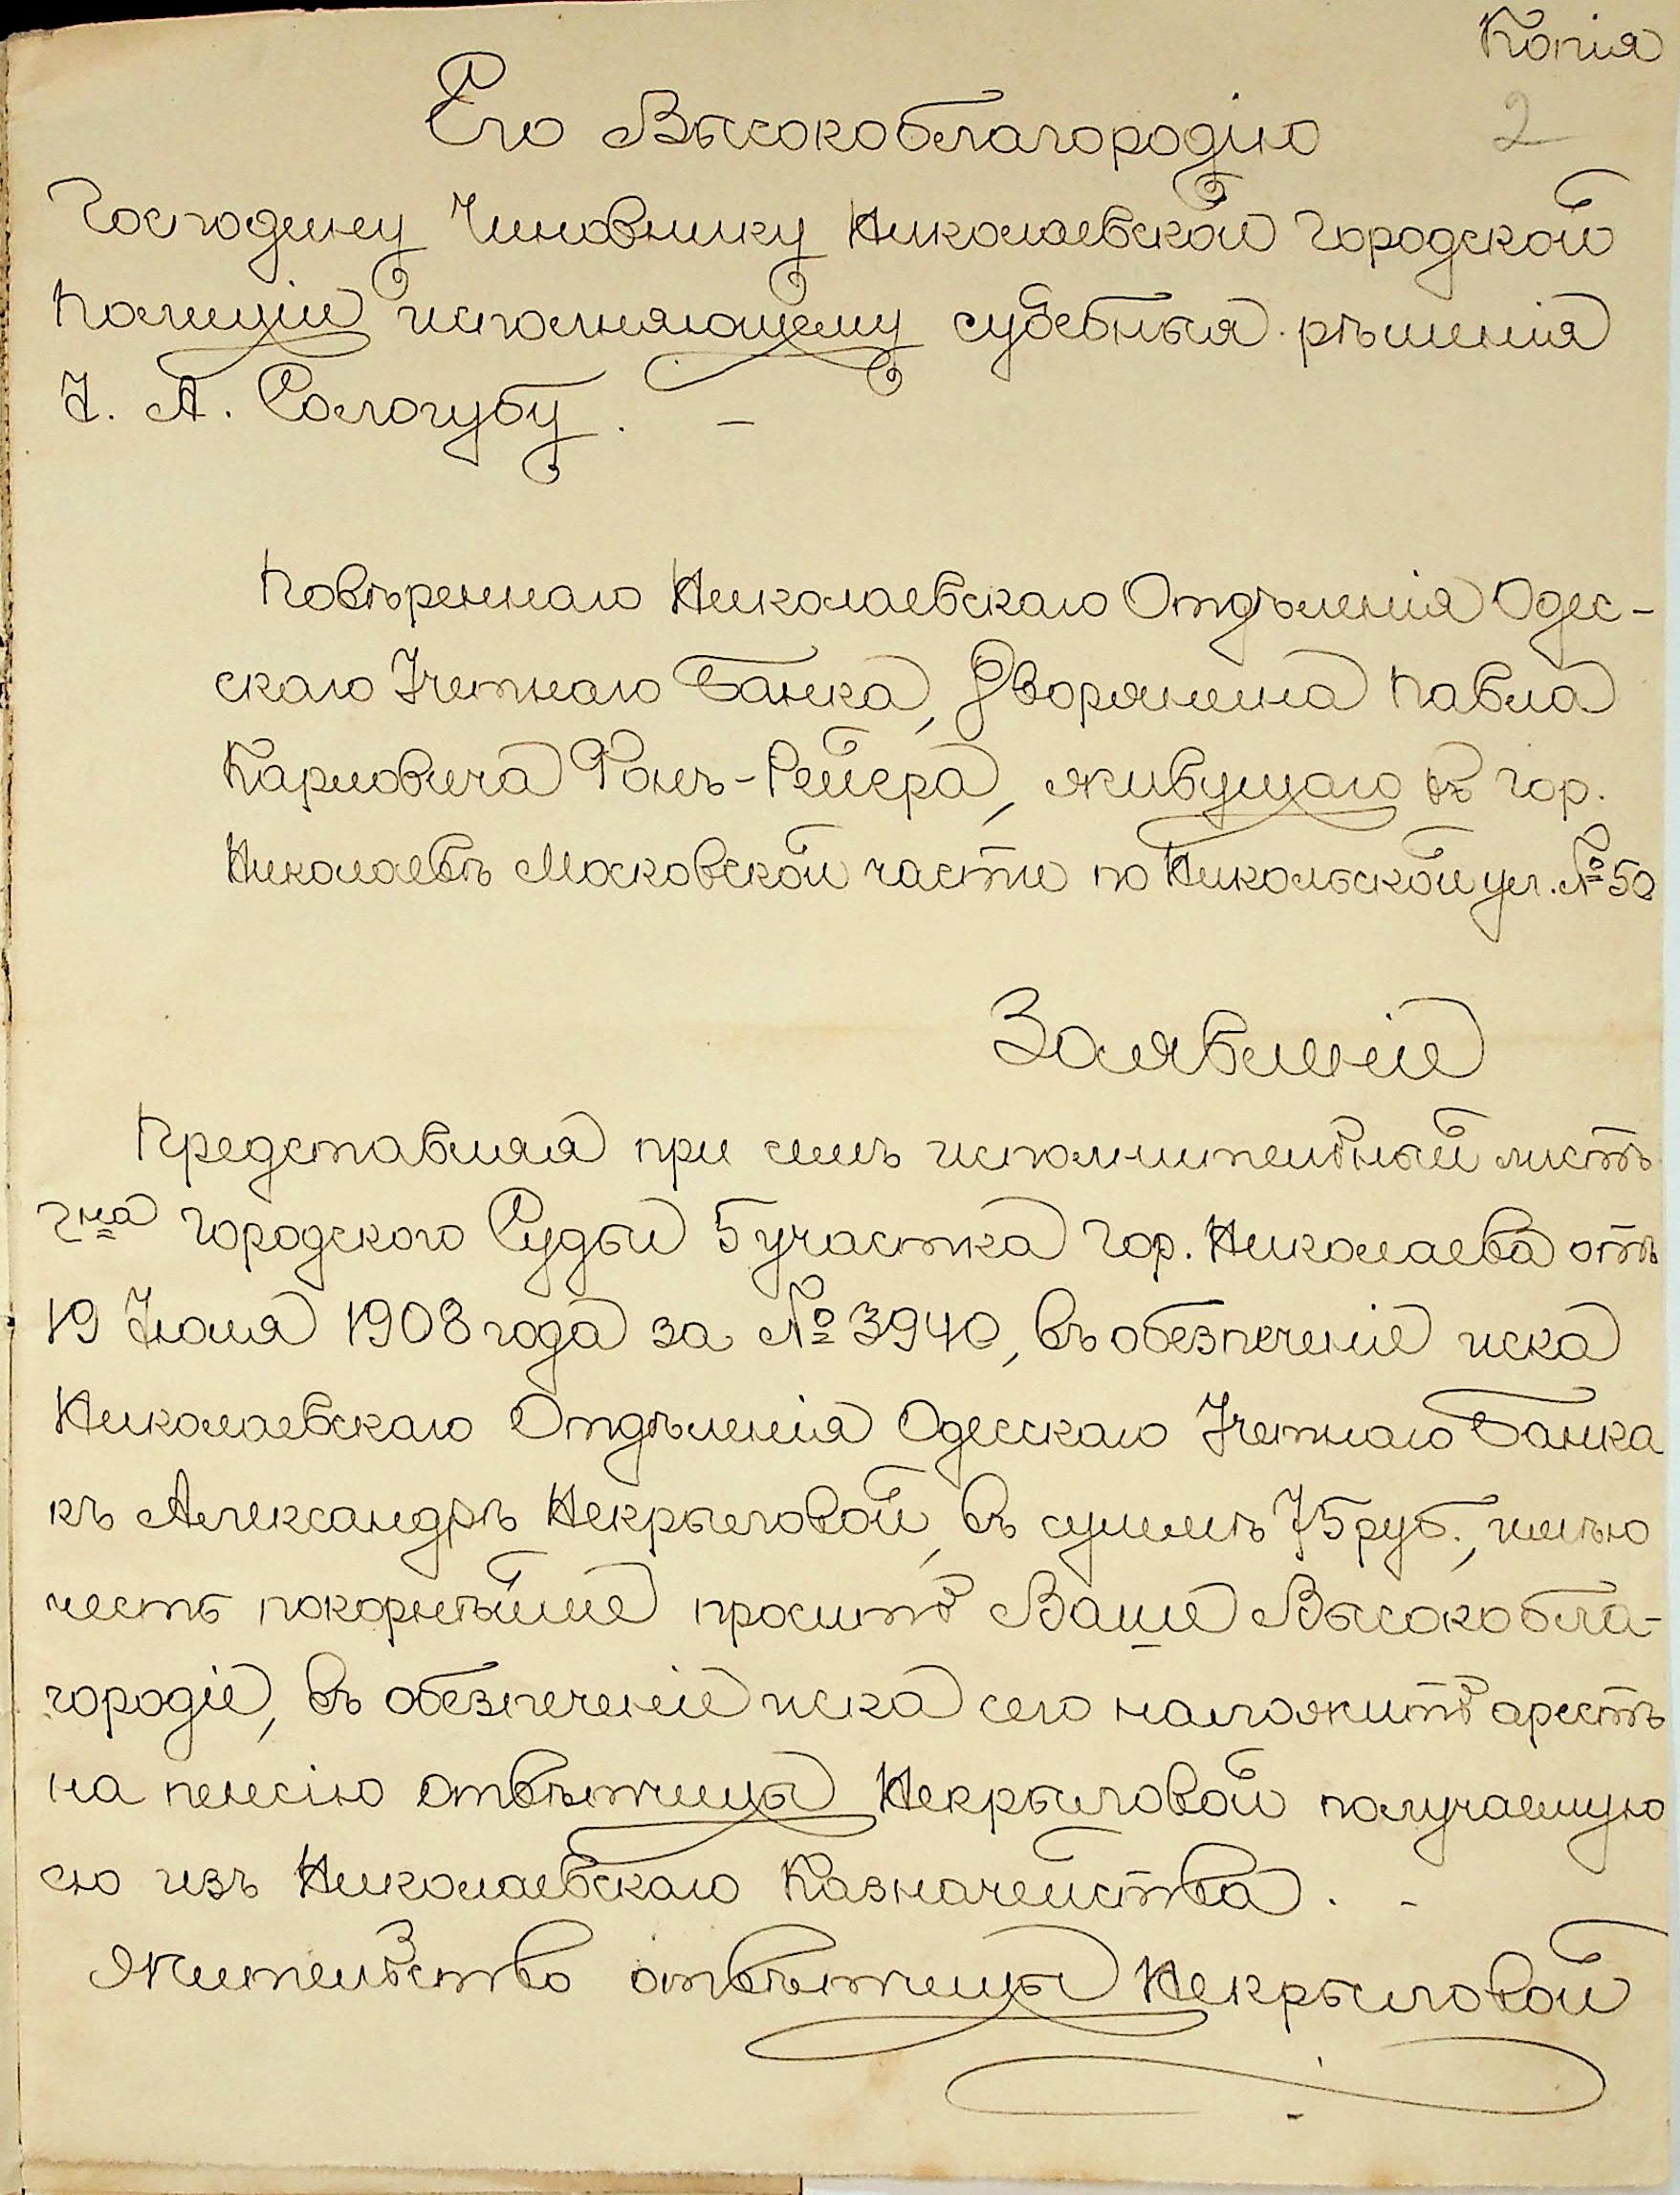 Копія
2
Его Высокоблагородію
Господину Чиновнику Николаевской Городской
Полиціи исполняющему судебныя рѣшенія
І. А. Сологубу. –
Повѣреннаго Николаевскаго Отдѣленія Одес-
скаго Учетнаго Банка, Дворянина Павла
Карловича Фонъ-Рейера, живущаго въ гор.
Николаевѣ Московской части по Никольской ул. № 50
Заявленіе
Представляя при семъ исполнительный листъ
Гна Городского Судьи 5 участка гор. Николаева отъ
19 Іюля 1908 года за № 3940, въ обезпеченіе иска
Николаевскаго Отдѣленія Одесскаго Учетнаго Банка
къ Александрѣ Некрыловой, въ суммѣ 75 руб., имѣю
честь покорнѣйше просить Ваше Высокобла-
городіе, въ обезпеченіе иска сего наложить арестъ
на пенсію отвѣтчицы Некрыловой получаемую
ею изъ Николаевскаго Казначейства. -
Жительство отвѣтчицы Некрыловой